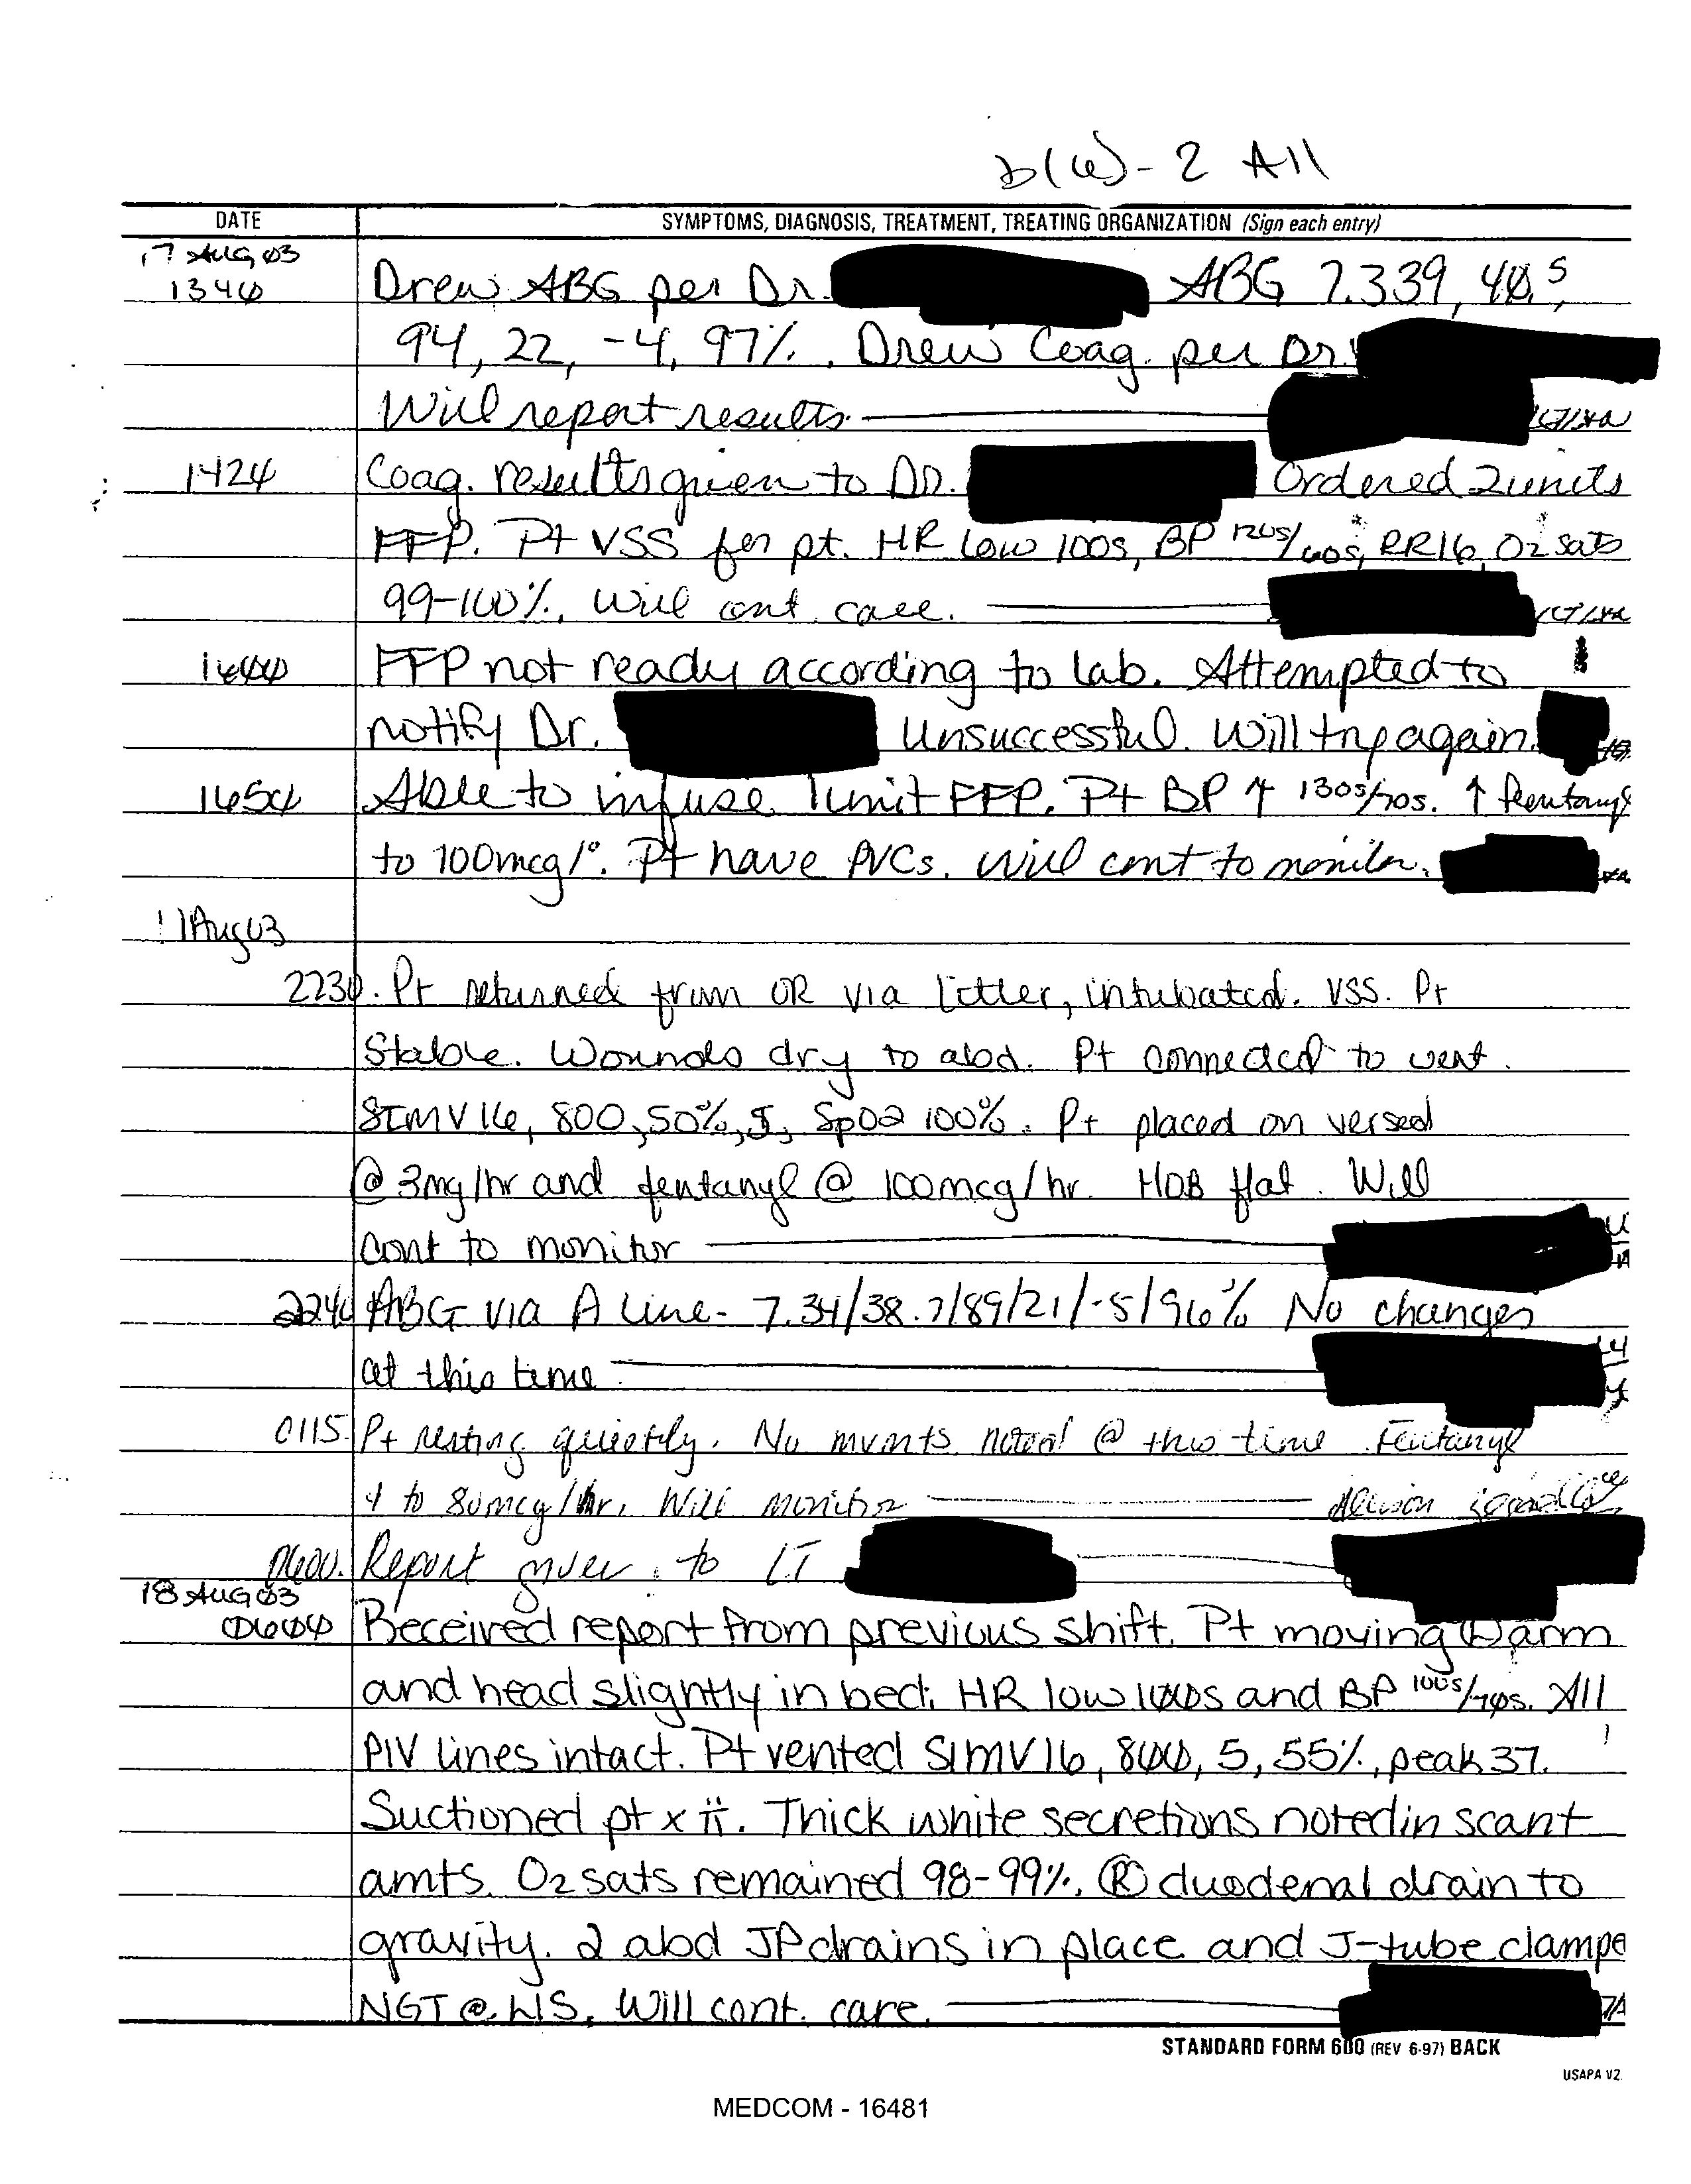 b(6)-2 All
DATE
SYMPTOMS, DIAGNOSIS, TREATMENT, TREATING ORGANIZATION (Sign each entry)
17 AUG 03
1340 Drew ABG per Dr. ABG 7.339, 40.5,
94, 22, -4, 97%. Drew Coag. per Dr.
Will report results.
1420 Coag. results given to Dr. Ordered 2units
FFP. Pt VSS for pt. HR low 100s, BP 120s/60s, RR16, O2 sats
99-100%. Will cont care.
1600 FFP not ready according to lab. Attempted to
notify Dr. Unsuccessful. Will try again.
1650 Able to infuse 1unit FFP. Pt BP ↑ 130s/70s. ↑ fentanyl
to 100mcg/°. Pt have PVCs. Will cont to monitor.
Aug 03
2230. Pt returned from OR via litter, intubated. VSS. Pt
Stable. Wounds dry to abd. Pt connected to vent.
SIMV 16, 800, 50%, 5, SpO2 100%. Pt placed on versed
@ 3mg/hr and fentanyl @ 100mcg/hr. HOB flat. Will
Cont to monitor
2240 ABG via A line- 7.34/38.7/89/21/-5/96% No changes
at this time
0115. Pt resting quietly. No mvmts noted @ this time. Fentanyl
↓ to 80mcg/hr. Will monitor
0600. Report given to LT
18 AUG 03
0600 Received report from previous shift. Pt moving arm
and head slightly in bed. HR low 100s and BP 100s/70s. All
PIV lines intact. Pt vented SIMV 16, 800, 5, 55%, peak 37.
Suctioned pt x ii. Thick white secretions noted in scant
amts. O2 sats remained 98-99%. Ⓡ duodenal drain to
gravity. 2 abd JP drains in place and J-tube clampe
NGT @ LIS. Will cont. care.
STANDARD FORM 600 (REV 6-97) BACK
USAPA V2
MEDCOM - 16481